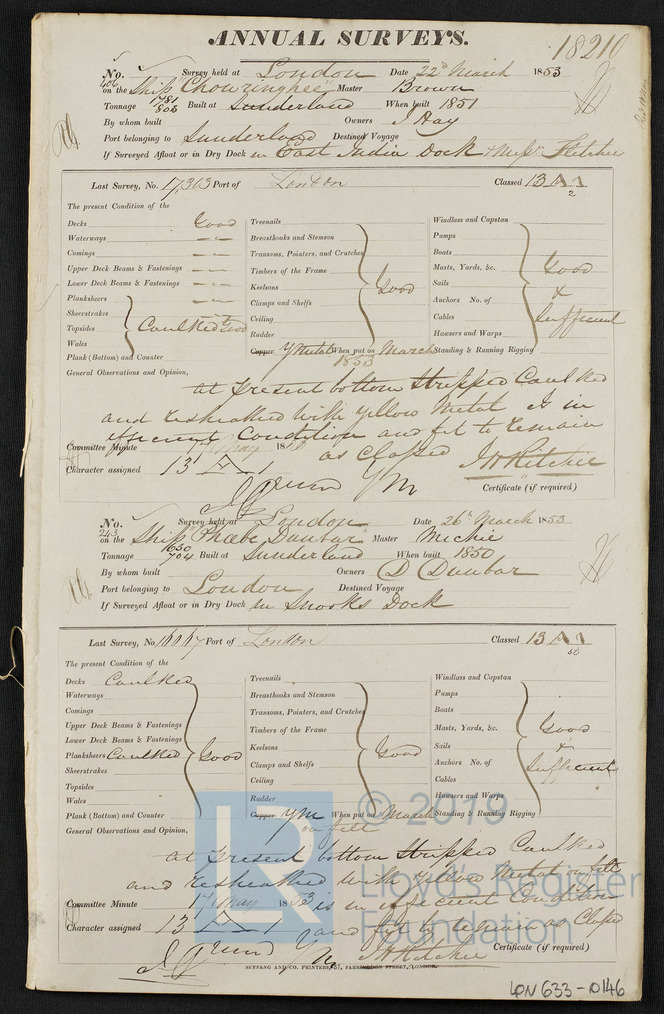 ANNUAL SURVEYS.
18210
No. 406 Survey held at London Date 22d March 1853
on the Ship "Chowringhee" Master Brown
Tonnage 1781/803 Built at Sunderland When built 1851
By whom built Owners J Hay
Port belonging to Sunderland Destined Voyage
If Surveyed Afloat or in Dry Dock in East India Dock & Messrs Fletcher
Last Survey, No. 17,363 Port of London Classed 13 A 1
2
The present Condition of the
Decks Good Treenails Windlass and Capstan
Waterways — — Breasthooks and Stemson Pumps
Comings — — Transoms, Pointers, and Crutches Boats
Upper Deck Beams & Fastenings — — Timbers of the Frame Masts, Yards, &c. Good
Lower Deck Beams & Fastenings — — Keelsons Good Sails &
Planksheers — — Clamps and Shelfs Anchors No. of
Sheerstrakes Ceiling Cables Sufficient
Topsides Caulked Good Rudder Hawsers and Warps
Wales Copper Y Metal When put on March 1853 Standing & Running Rigging
Plank (Bottom) and Counter
General Observations and Opinion,
at present bottom stripped Caulked
and resheathed with yellow Metal is in
efficient Condition and fit to remain
as Classed J H Ritchie
Committee Minute 17 May 18
Character assigned 13 A 1
YM Certificate (if required)
No. 243 Survey held at London Date 26th March 1853
on the Ship "Phœbe Dunbar" Master Michie
Tonnage 704 Built at Sunderland When built 1850
By whom built Owners D Dunbar
Port belonging to London Destined Voyage
If Surveyed Afloat or in Dry Dock in Snooks Dock
Last Survey, No 16067 Port of London Classed 13 A 1
50
The present Condition of the
Decks Caulked Treenails Windlass and Capstan
Waterways Breasthooks and Stemson Pumps
Comings Transoms, Pointers, and Crutches Boats
Upper Deck Beams & Fastenings Timbers of the Frame Masts, Yards, &c. Good
Lower Deck Beams & Fastenings Keelsons Good Sails &
Planksheers Caulked Good Clamps and Shelfs Anchors No. of Sufficient
Sheerstrakes Ceiling Cables
Topsides Rudder Hawsers and Warps
Wales Copper YM When put on March Standing & Running Rigging
on felt
Plank (Bottom) and Counter
General Observations and Opinion,
at present bottom stripped Caulked
and resheathed with yellow Metal on felt
Committee Minute 17 May 1853 is in efficient Condition
Character assigned 13 A 1 and fit to remain as Classed
YM J H Ritchie Certificate (if required)
SEYFANG AND CO. PRINTERS, 57, FARRINGDON STREET, LONDON.
LON 633-0146
LR
© 2019
Lloyd's Register
Foundation